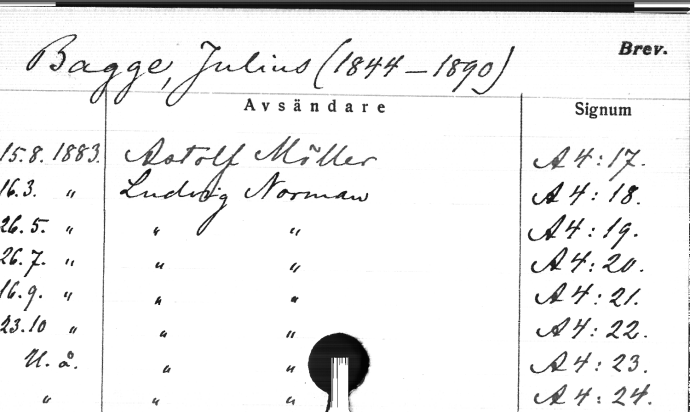 Brev.
Bagge, Julius (1844–1890)
Avsändare Signum
15.8. 1883. Astolf Möller A 4:17.
16.3. " Ludvig Norman A 4:18.
26.5. " " " A 4:19.
26.7. " " " A 4:20.
16.9. " " " A 4:21.
23.10 " " " A 4:22.
U. å. " " A 4:23.
" " " A 4:24.